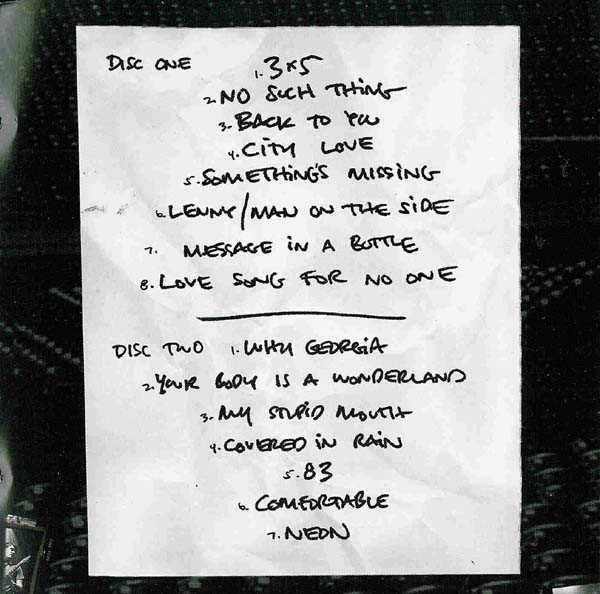 DISC ONE 1. 3x5
2. NO SUCH THING
3. BACK TO YOU
4. CITY LOVE
5. SOMETHING'S MISSING
6. LENNY/MAN ON THE SIDE
7. MESSAGE IN A BOTTLE
8. LOVE SONG FOR NO ONE
DISC TWO 1. WHY GEORGIA
2. YOUR BODY IS A WONDERLAND
3. MY STUPID MOUTH
4. COVERED IN RAIN
5. 83
6. COMFORTABLE
7. NEON